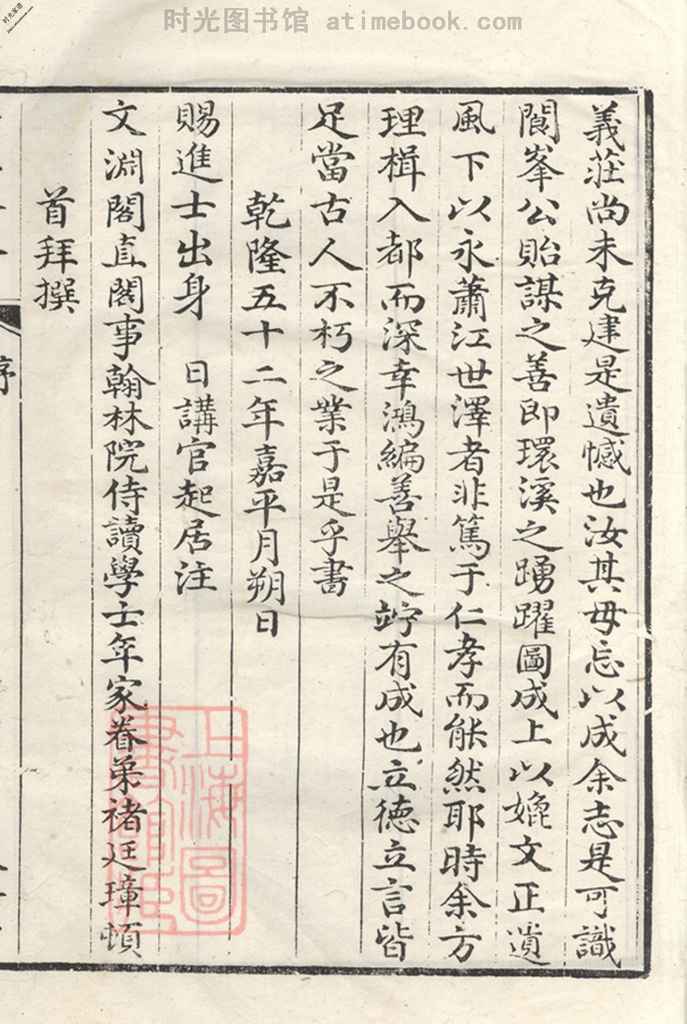 时光图书馆 atimebook.com
義莊尚未克建是遺憾也汝其毋忘以成余志是可識
閬峯公貽謀之善即環溪之踴躍圖成上以媲文正遺
風下以永蕭江世澤者非篤于仁孝而能然耶時余方
理楫入都而深幸鴻編善舉之竚有成也立德立言皆
足當古人不朽之業于是乎書
乾隆五十二年嘉平月朔日
賜進士出身 日講官起居注
文淵閣直閣事翰林院侍讀學士年家眷弟褚廷璋頓
首拜撰
序
上海圖
書館藏